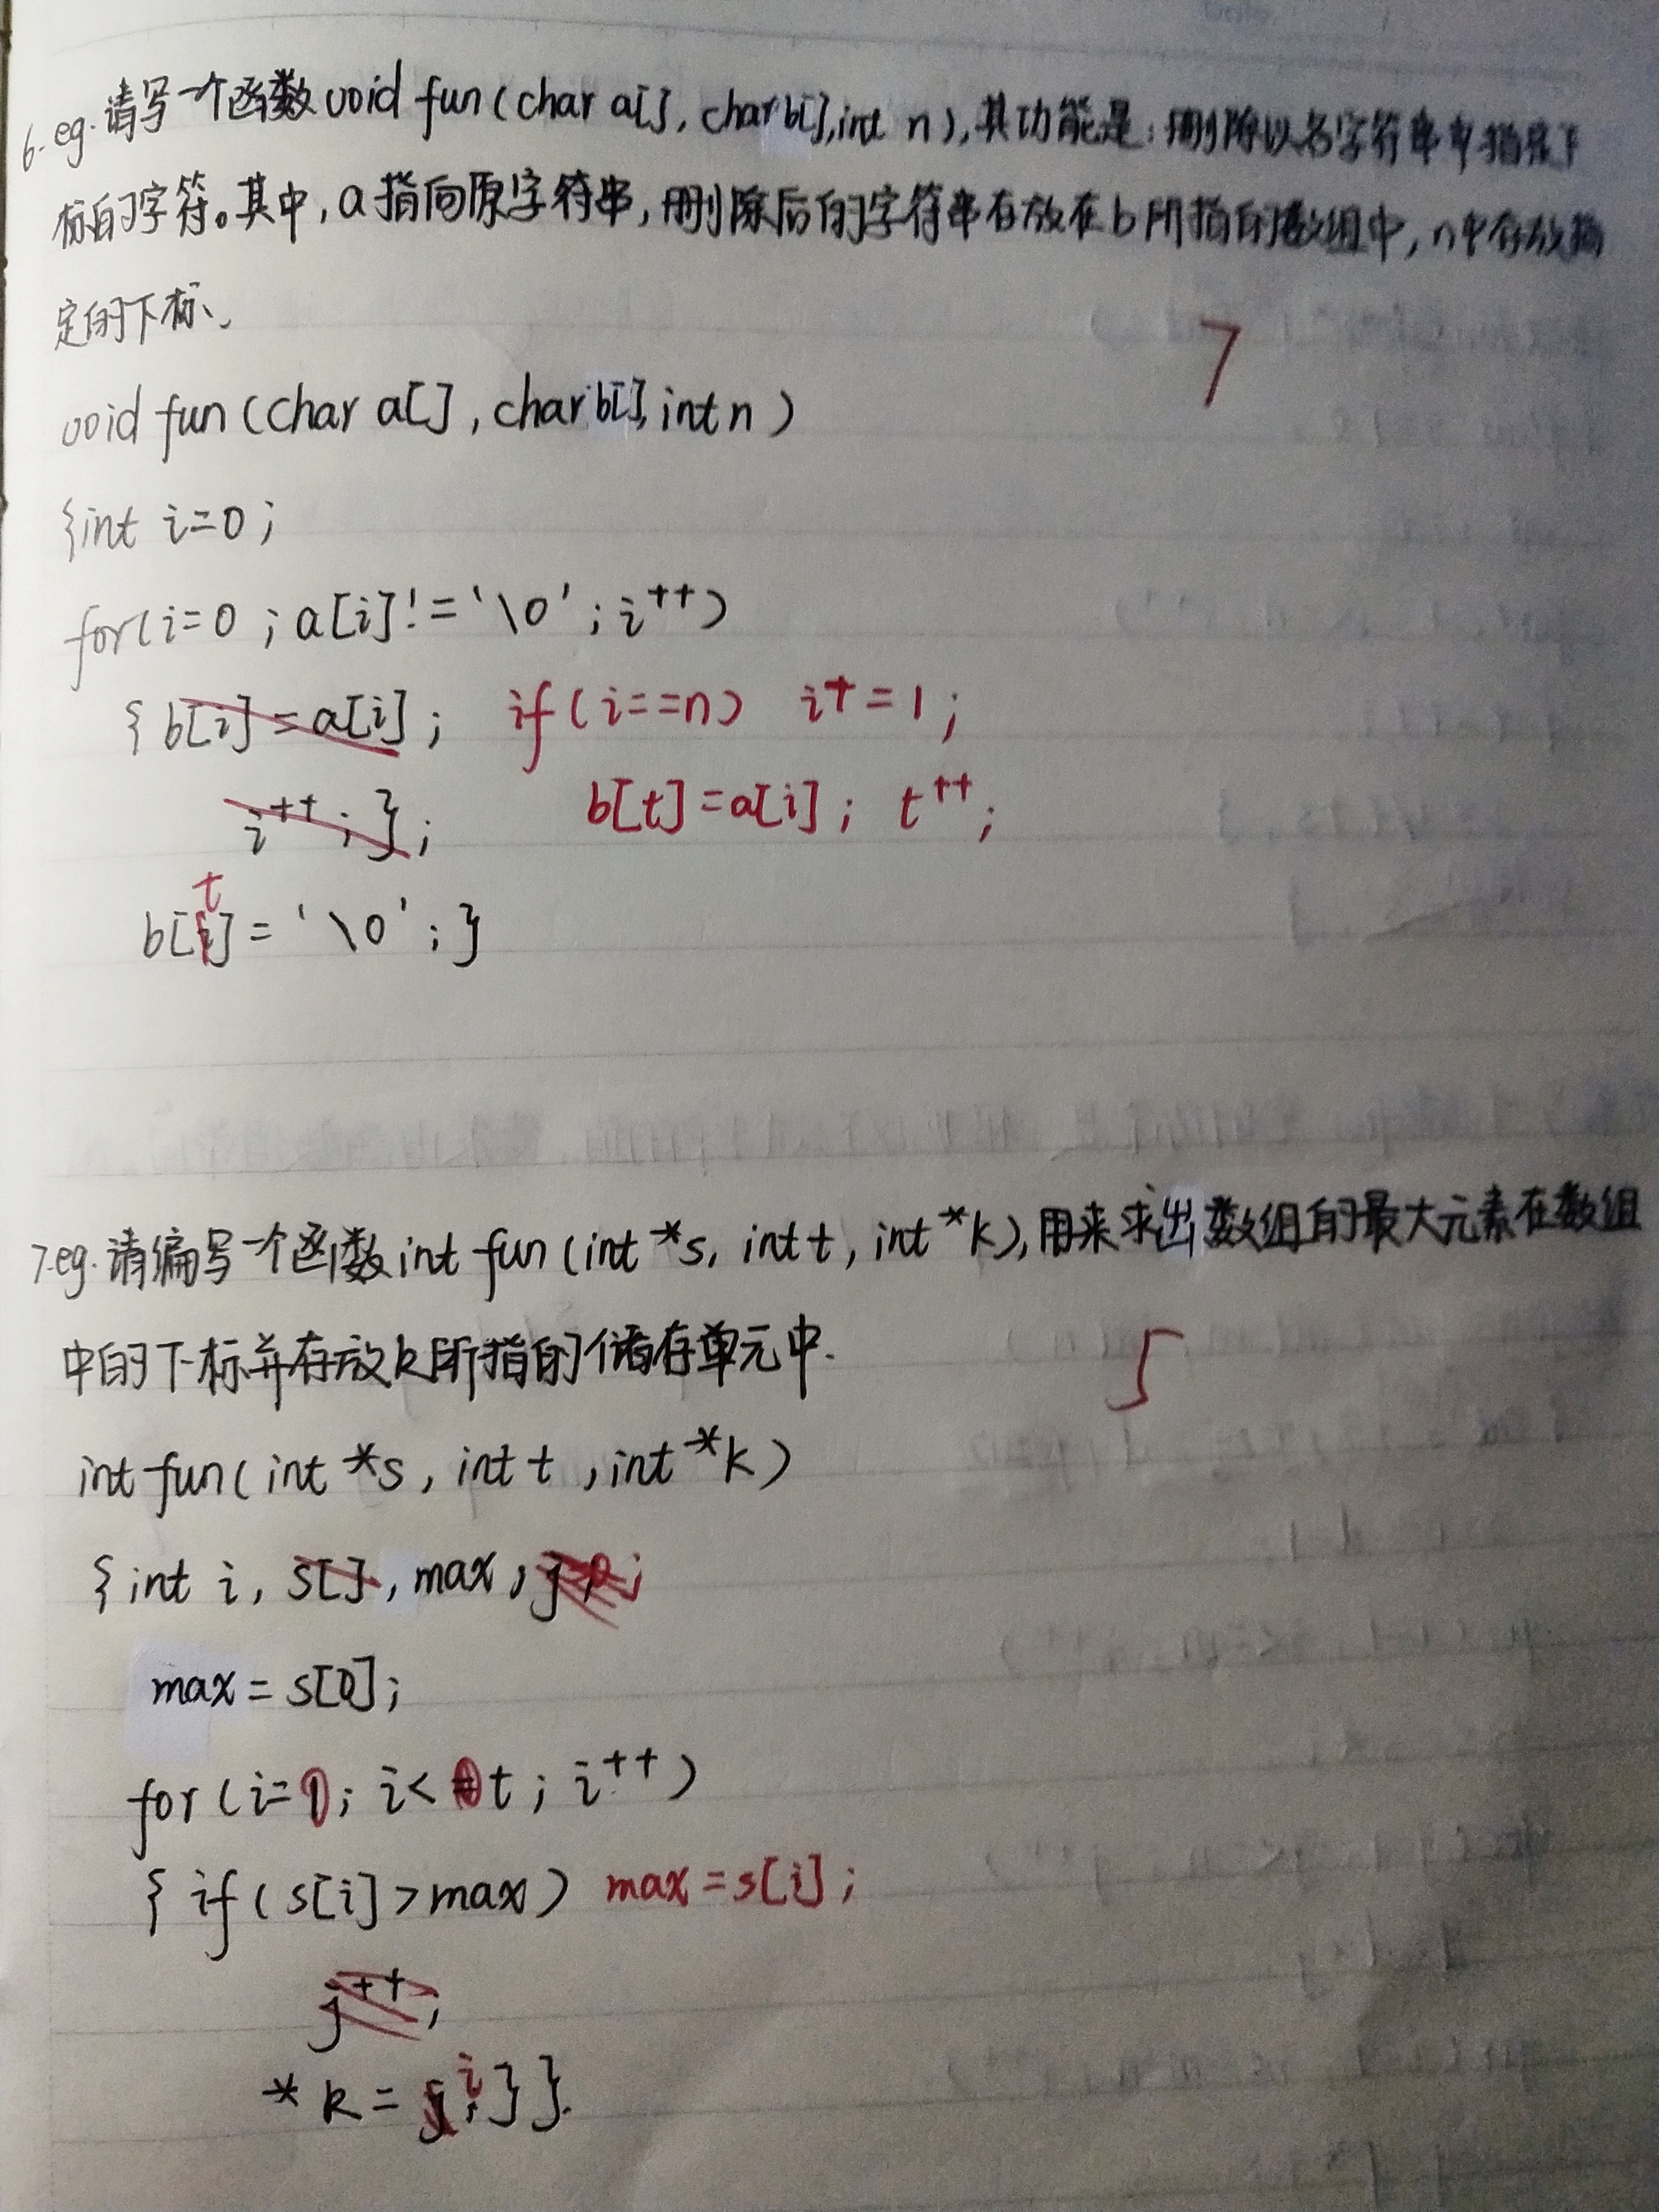 6.eg.请写一个函数void fun(char a[],char b[],int n),其功能是:删除以名字符串中指定下
标的字符。其中,a指向原字符串,删除后的字符串存放在b所指的数组中,n中存放指
定的下标、
7
void fun(char a[],char b[],int n)
{int i=0;
for(i=0;a[i]!='\0';i++)
{b[i]=a[i]; if(i==n) i+=1;
i++;}; b[t]=a[i]; t++;
t
b[i]='\0';}
7.eg.请编写一个函数int fun(int *s, int t, int *k),用来求出数组的最大元素在数组
中的下标并存放k所指的储存单元中.
5
int fun(int *s, int t, int *k)
{int i, s[], max,
max=s[0];
for(i=1; i<t; i++)
{if(s[i]>max) max=s[i];
j++;
*k=i;}}.